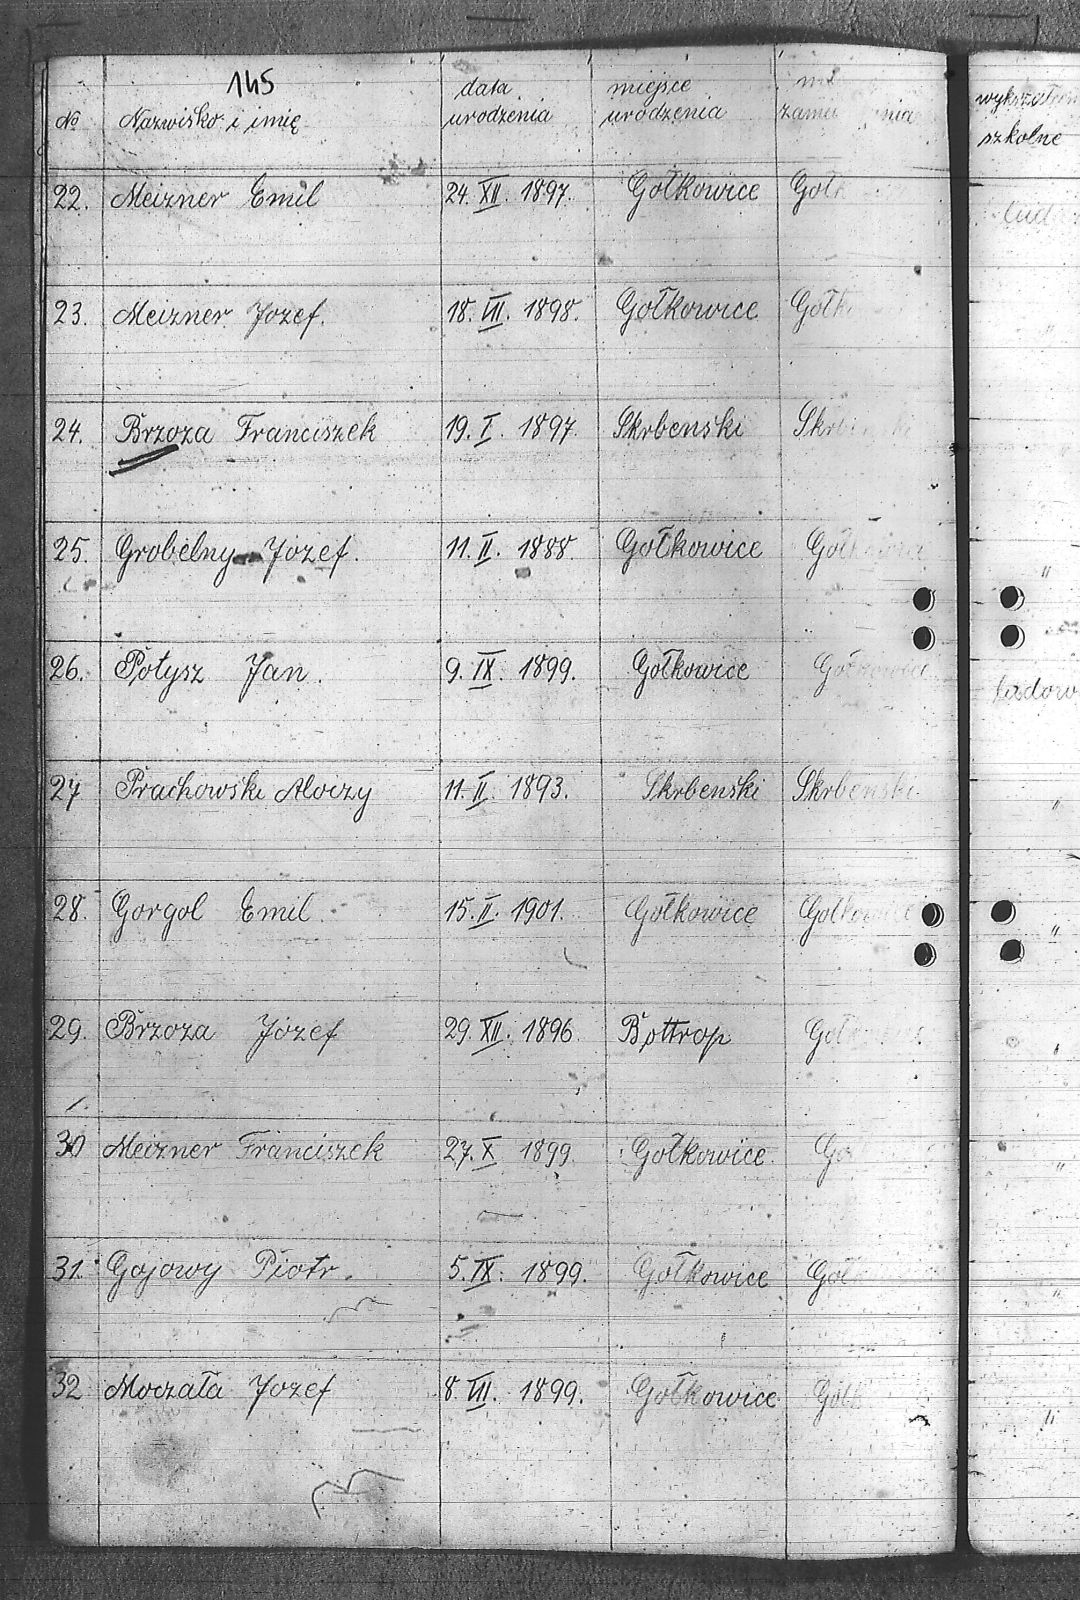 145
№ Nazwisko i imię data urodzenia miejsce urodzenia wykszta szkolne
22. Meizner Emil 24. XII. 1897. Gołkowice Gołk
23. Meizner Jozef. 18. VII. 1898. Gołkowice Gołk
24. Brzoza Franciszek 19. I. 1897 Skrbenski Skrbenski
25. Grobelny Józef. 11. II. 1888 Gołkowice Gołkowice "
26. Połysz Jan. 9. IX. 1899. Gołkowice Gołkowice ludow
27 Prachowski Aloizy 11. II. 1893. Skrbenski Skrbenski "
28. Gorgol Emil. 15. II. 1901. Gołkowice Gołkowice "
29. Brzoza Józef 29. XII. 1896. Bottrop Gołkowice
30 Meizner Franciszek 27. X 1899 Gołkowice Go "
31. Gajowy Piotr. 5. IX. 1899. Gołkowice Goł "
32 Moczała Jozef 8 VII. 1899. Gołkowice Gołk "